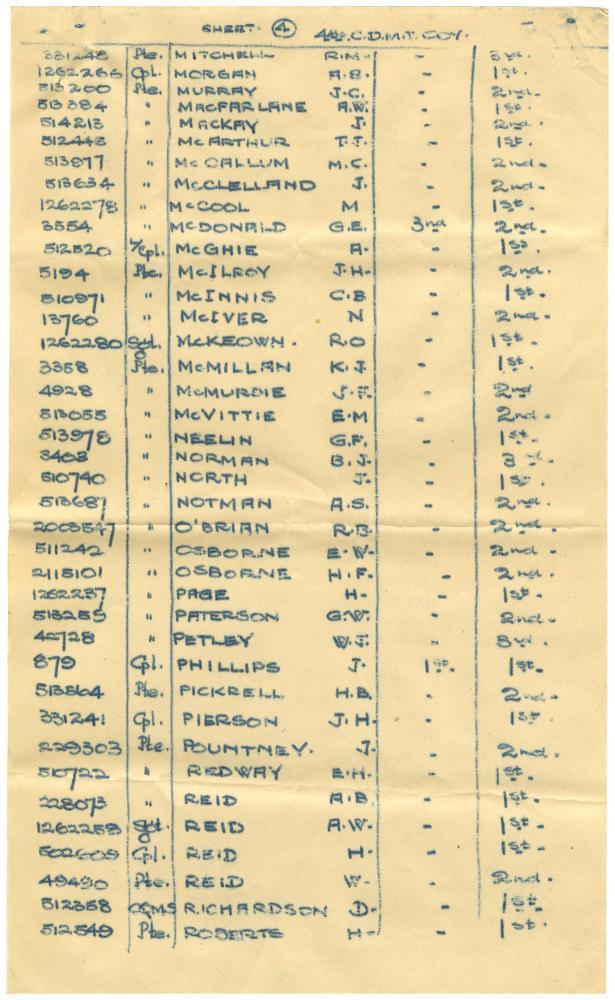 SHEET. 4 4th C.D.M.T. COY.
331248 Pte. MITCHELL R.M. - 3rd.
1262266 Cpl. MORGAN A.S. - 1st.
513200 Pte. MURRAY J.C. - 2nd.
513384 " MACFARLANE A.W. - 1st.
514213 " MACKAY J. - 2nd.
512443 " McARTHUR T.J. - 1st.
513877 " McCALLUM M.C. - 2nd.
513634 " McCLELLAND J. - 2nd.
1262278 " McCOOL M - 1st.
3554 " McDONALD G.E. 3nd 2nd.
512520 L/Cpl. McGHIE A. - 1st.
5194 Pte. McILROY J.H. - 2nd.
510971 " McINNIS C.B - 1st.
13760 " McIVER N - 2nd.
1262280 Sgt. McKEOWN. R.O - 1st.
3358 Pte. McMILLAN K.J - 1st.
4928 " McMURDIE J.F. - 2nd
513055 " McVITTIE E.M - 2nd.
513978 " NEELIN G.F. - 1st.
3403 " NORMAN G.J. - 3rd.
510740 " NORTH J. - 1st.
513687 " NOTMAN A.S. - 2nd.
2003547 " O'BRIAN R.B - 2nd.
511242 " OSBORNE E.W. - 2nd.
2115101 " OSBORNE H.F. - 2nd.
1262237 " PAGE H. - 1st.
513255 " PATERSON G.W. - 2nd.
42728 " PETLEY W.J. - 3rd.
879 Cpl. PHILLIPS J. 1st. 1st.
513864 Pte. PICKRELL H.B. - 2nd.
331241 Cpl. PIERSON J.H. - 1st.
229303 Pte. POUNTNEY. J. - 2nd.
510722 " REDWAY E.H. - 1st.
228073 " REID A.B. - 1st.
1262259 Sgt. REID A.W. - 1st.
502609 Cpl. REID H. - 1st.
49490 Pte. REID W. - 2nd.
512358 CQMS RICHARDSON D. - 1st.
512549 Pte. ROBERTS H. - 1st.